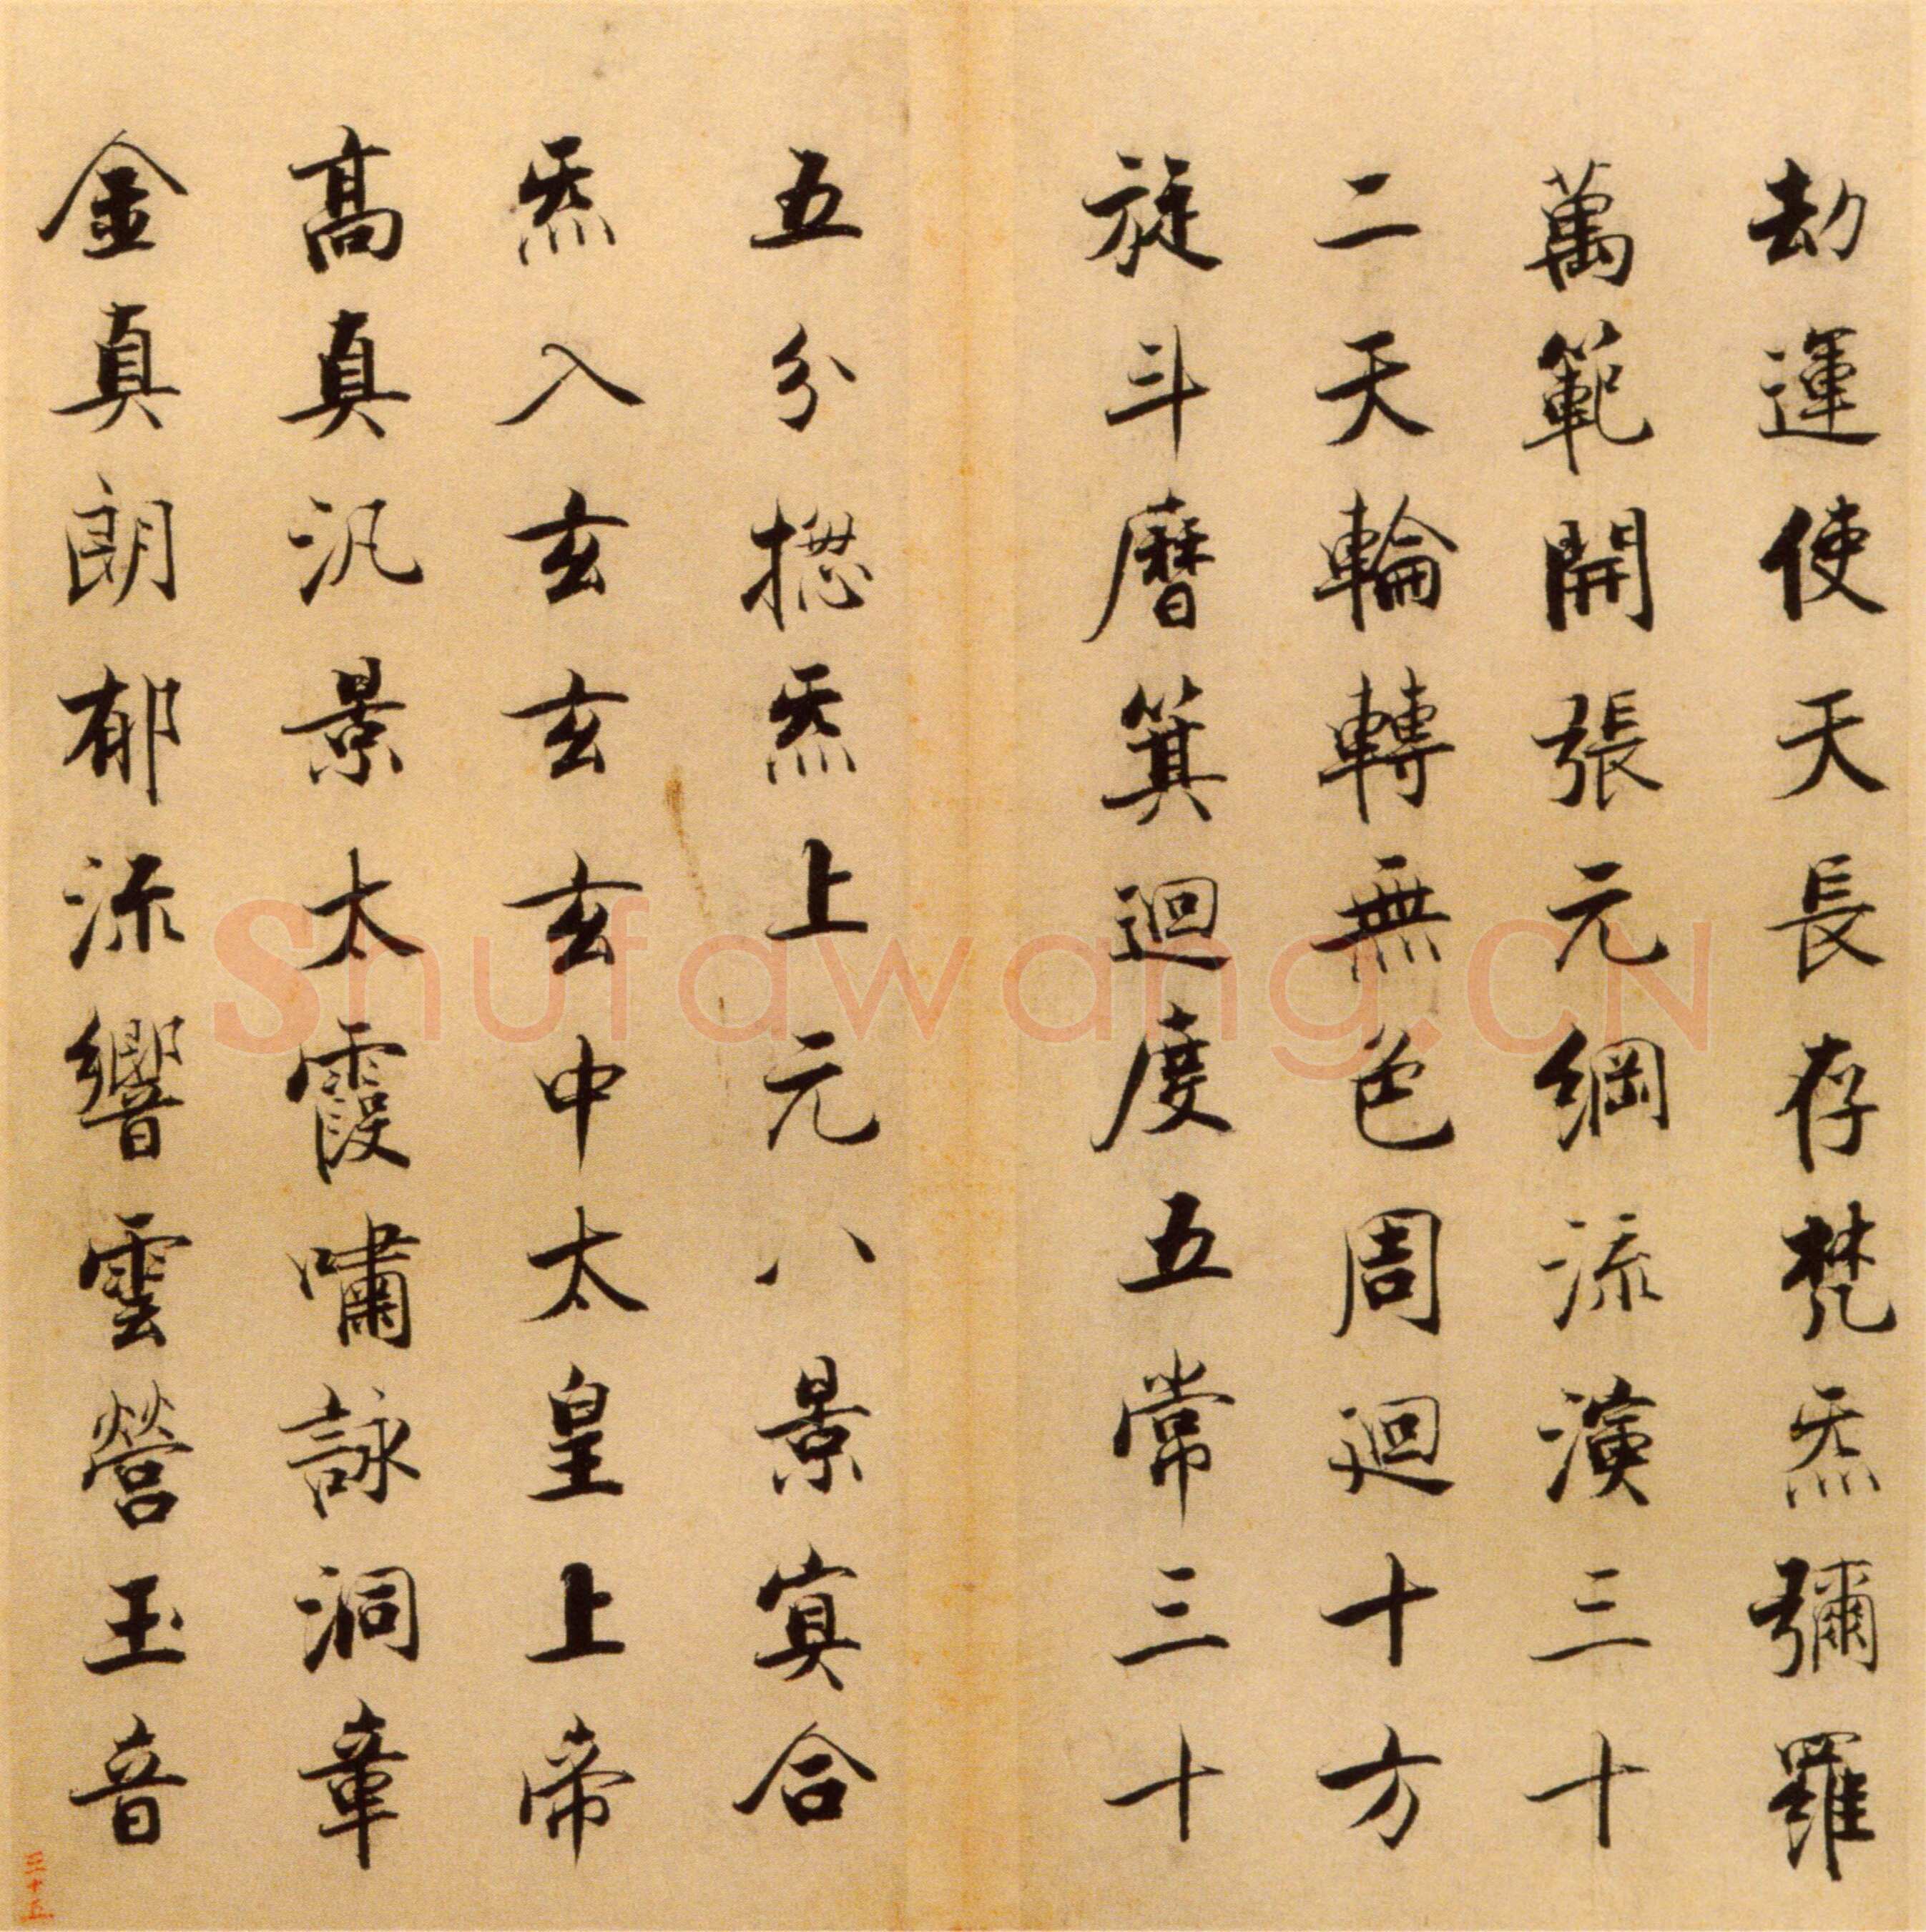 劫運使天長存梵炁彌羅
萬範開張元綱流演三十
二天輪轉無色周迴十方
旋斗曆箕迴度五常三十
五分揔炁上元八景冥合
炁入玄玄玄中太皇上帝
高真汎景太霞嘯詠洞章
金真朗郁流響雲營玉音
三十五
Shufawang.CN